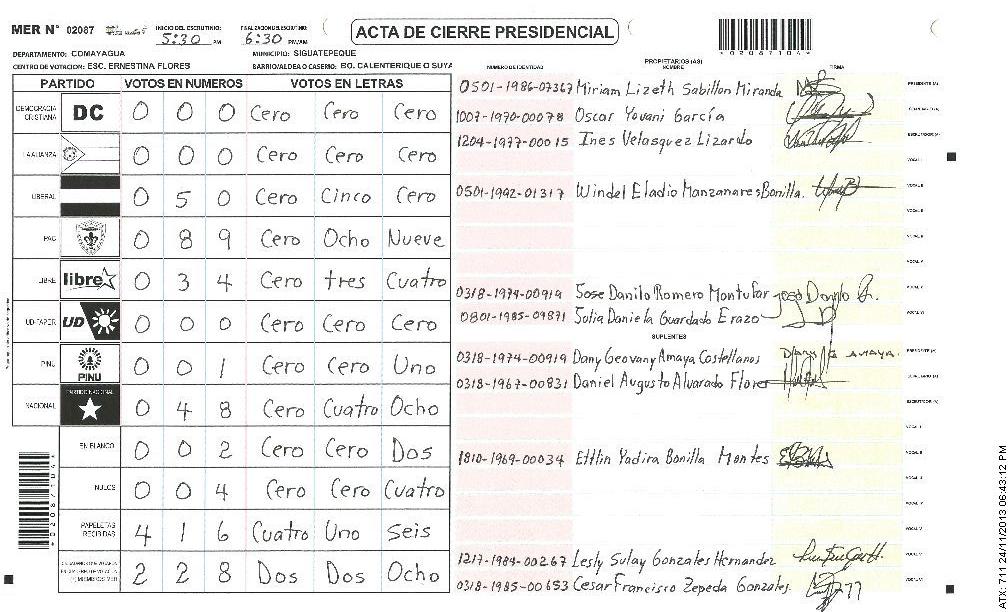 MER N° 02087 INICIO DEL ESCRUTINIO: 5:30 PM FINALIZACION ESCRUTINIO: 6:30 PM/AM ACTA DE CIERRE PRESIDENCIAL *02087104*
DEPARTAMENTO: COMAYAGUA MUNICIPIO: SIGUATEPEQUE
CENTRO DE VOTACION: ESC. ERNESTINA FLORES BARRIO/ALDEA O CASERIO: BO. CALENTERIQUE O SUYA
PARTIDO VOTOS EN NUMEROS VOTOS EN LETRAS
DEMOCRACIA CRISTIANA DC 0 0 0 Cero Cero Cero
LA ALIANZA 0 0 0 Cero Cero Cero
LIBERAL 0 5 0 Cero Cinco Cero
PAC 0 8 9 Cero Ocho Nueve
LIBRE libre 0 3 4 Cero tres Cuatro
UD-FAPER UD 0 0 0 Cero Cero Cero
PINU PINU 0 0 1 Cero Cero Uno
NACIONAL PARTIDO NACIONAL 0 4 8 Cero Cuatro Ocho
EN BLANCO 0 0 2 Cero Cero Dos
NULOS 0 0 4 Cero Cero Cuatro
PAPELETAS RECIBIDAS 4 1 6 Cuatro Uno Seis
2 2 8 Dos Dos Ocho
*02087104*
NUMERO DE IDENTIDAD PROPIETARIOS (AS) NOMBRE FIRMA
0501-1986-07367 Miriam Lizeth Sabillon Miranda PRESIDENTE (A)
1007-1970-00078 Oscar Yovani García SECRETARIO (A)
1204-1977-00015 Ines Velasquez Lizardo ESCRUTADOR (A)
VOCAL I
0501-1992-01317 Windel Eladio Manzanares Bonilla. VOCAL II
VOCAL III
VOCAL IV
0318-1974-00919 Jose Danilo Romero Montufar Jose Danilo R.
0801-1985-09871 Julia Daniela Guardado Erazo
SUPLENTES
0318-1974-00919 Dany Geovany Amaya Castellanos Dany G AMAYA PRESIDENTE (A)
0318-1967-00831 Daniel Augusto Alvarado Flores SECRETARIO (A)
ESCRUTADOR (A)
VOCAL I
1810-1969-00034 Ettlin Yadira Bonilla Montes
1217-1984-00267 Lesly Sulay Gonzales Hernandez
0318-1985-00653 Cesar Francisco Zepeda Gonzales.
ATX 711 24/11/2013 06:43:12 PM